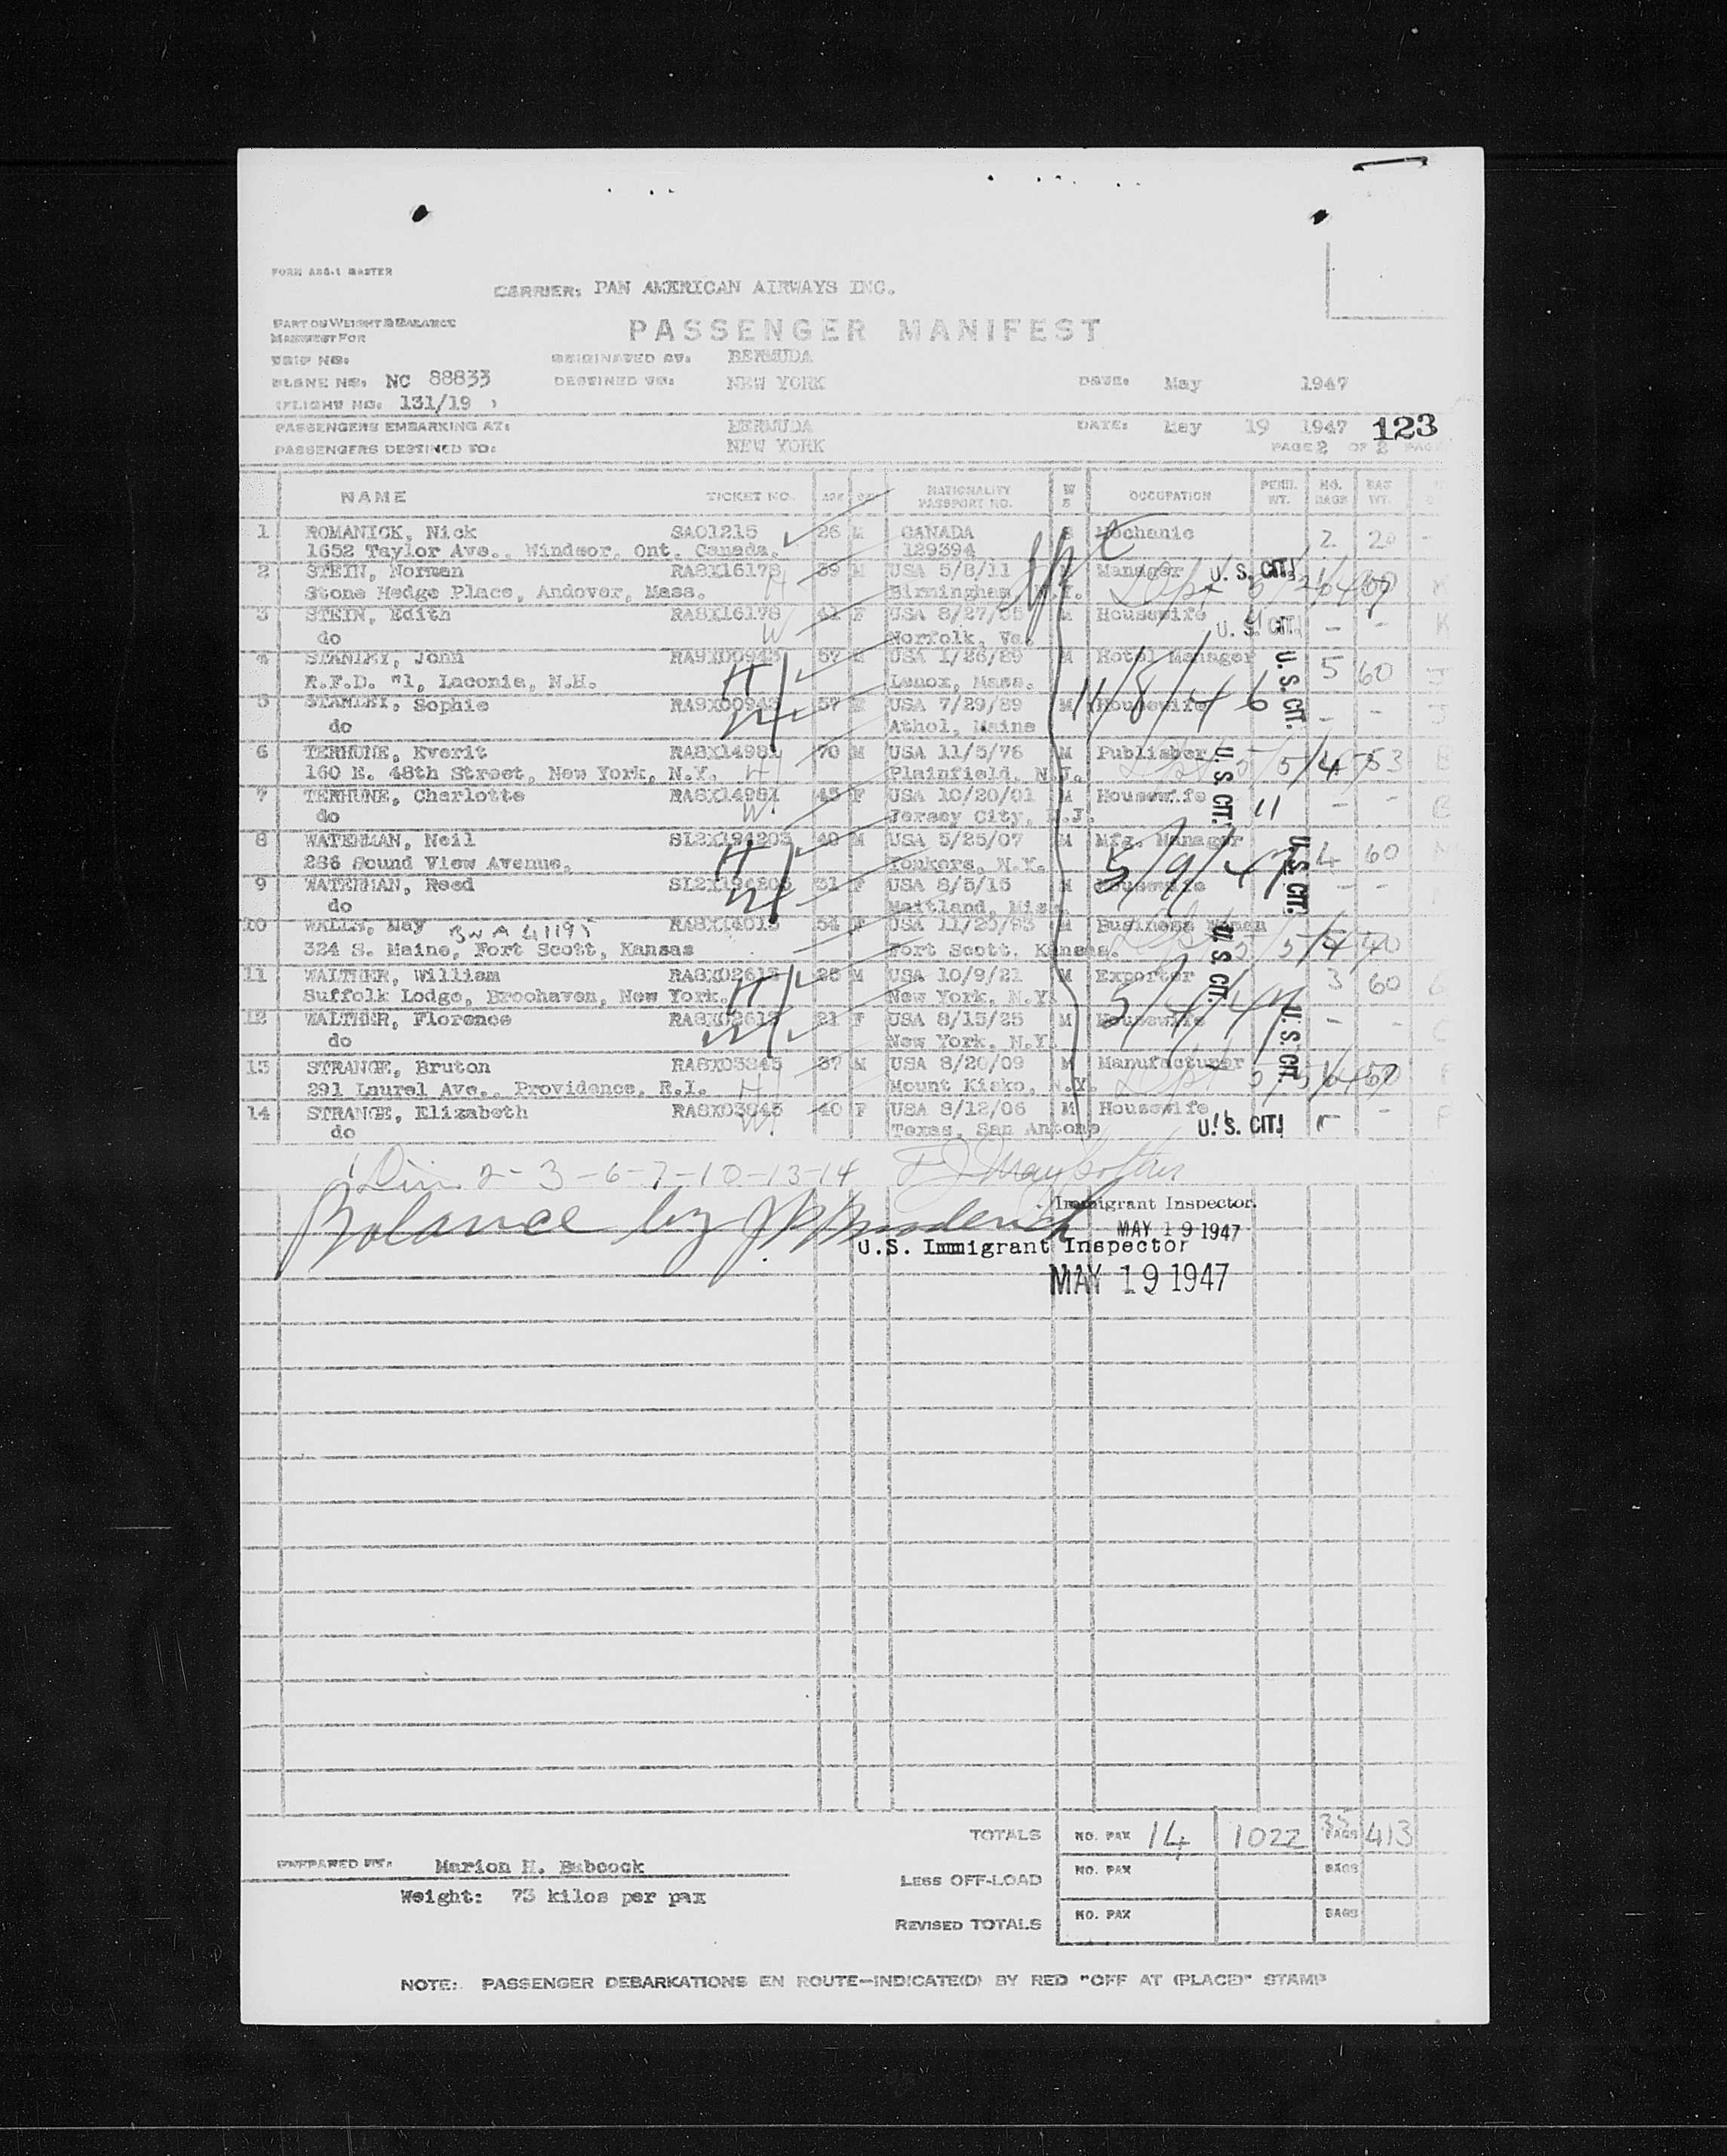 FORM ASS-1 MASTER
CARRIER: PAN AMERICAN AIRWAYS INC.
PART OF WEIGHT & BALANCE
MANIFEST FOR
PASSENGER MANIFEST
TRIP NO:
ORIGINATED AT: BERMUDA
PLANE NO: NC 88833
DESTINED TO: NEW YORK
DATE: May 1947
(FLIGHT NO: 131/19 )
PASSENGERS EMBARKING AT: BERMUDA
DATE: May 19 1947 123
PASSENGERS DESTINED TO: NEW YORK
PAGE 2 OF 2
NAME TICKET NO. AGE SEX NATIONALITY PASSPORT NO. OCCUPATION NO. BAGS BAG WT.
1 ROMANICK, Nick SA01215 26 M CANADA S Mechanic 2 20
1652 Taylor Ave., Windsor, Ont. Canada. 129394
2 STEIN, Norman RA8X16178 39 M USA 5/8/11 Manager U. S. CIT.
Stone Hedge Place, Andover, Mass. Birmingham, N.Y.
3 STEIN, Edith RA8X16178 41 F USA 8/27/05 M Housewife U. S. CIT. - -
do Norfolk, Va.
4 STANLEY, John RA9X00943 57 M USA 1/26/89 M Hotel Manager U. S. CIT. 5 60
R.F.D. "1, Laconia, N.H. H Lenox, Mass.
5 STANLEY, Sophie RA9X00943 57 F USA 7/29/89 M Housewife 11/8/46 - -
do W Athol, Maine
6 TERHUNE, Everit RA8X14981 70 M USA 11/5/76 M Publisher U. S. CIT. 53
160 E. 48th Street, New York, N.Y. H Plainfield, N.J.
7 TERHUNE, Charlotte RA8X14981 45 F USA 10/20/01 M Housewife 11 - -
do W Jersey City, N.J.
8 WATERMAN, Neil SL2X194203 40 M USA 5/25/07 M Mfg. Manager U. S. CIT. 4 60
286 Sound View Avenue, H Yonkers, N.Y. 5/9/47
9 WATERMAN, Reed 31 F USA 8/5/15 M Housewife - -
do W Maitland, Miss.
10 WALLS, May RA8X14015 54 F USA Business Woman U. S. CIT.
324 S. Maine, Fort Scott, Kansas Fort Scott, Kansas.
11 WALTHER, William RA8X02613 25 M USA 10/9/21 M Exporter 3 60
Suffolk Lodge, Broohaven, New York. H New York, N.Y.
12 WALTHER, Florence RA8X02613 21 F USA 8/15/25 M Housewife U. S. CIT. - -
do W New York, N.Y.
13 STRANGE, Bruton RA8X03845 37 M USA 8/20/09 M Manufacturer
291 Laurel Ave., Providence, R.I. H Mount Kisko, N.Y.
14 STRANGE, Elizabeth RA8X03845 40 F USA 8/12/06 M Housewife U. S. CIT. -
do W Texas, San Antono
2-3-6-7-10-13-14
Immigrant Inspector.
Balance by
MAY 19 1947
U.S. Immigrant Inspector
MAY 19 1947
TOTALS NO. PAX 14 1022 BAGS 413
PREPARED BY: Marion H. Babcock
NO. PAX BAGS
LESS OFF-LOAD
Weight: 73 kilos per pax
NO. PAX BAGS
REVISED TOTALS
NOTE: PASSENGER DEBARKATIONS EN ROUTE—INDICATE(D) BY RED "OFF AT (PLACE)" STAMP